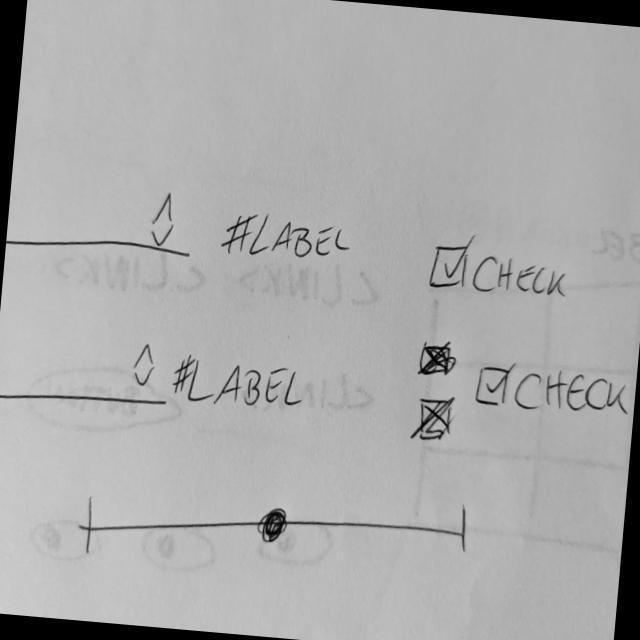 #LABEL
CHECK
#LABEL
CHECK